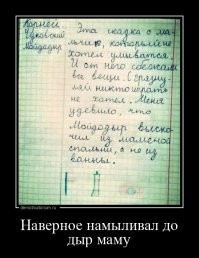 Корней
Чуковский
Мойдодыр
Эта сказка о ма-
льчике, который не
хотел умываться.
И от него сбежали
вещи. С грязну-
лей никто играть
не хотел. Меня
удивило, что
Мойдодыр выско-
чил из маминой
спальни, а не из
ванны.
Наверное намыливал до
дыр маму